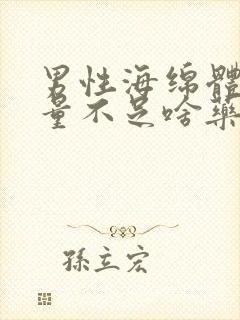 男性海绵體
量不足啥藥
孫立宏